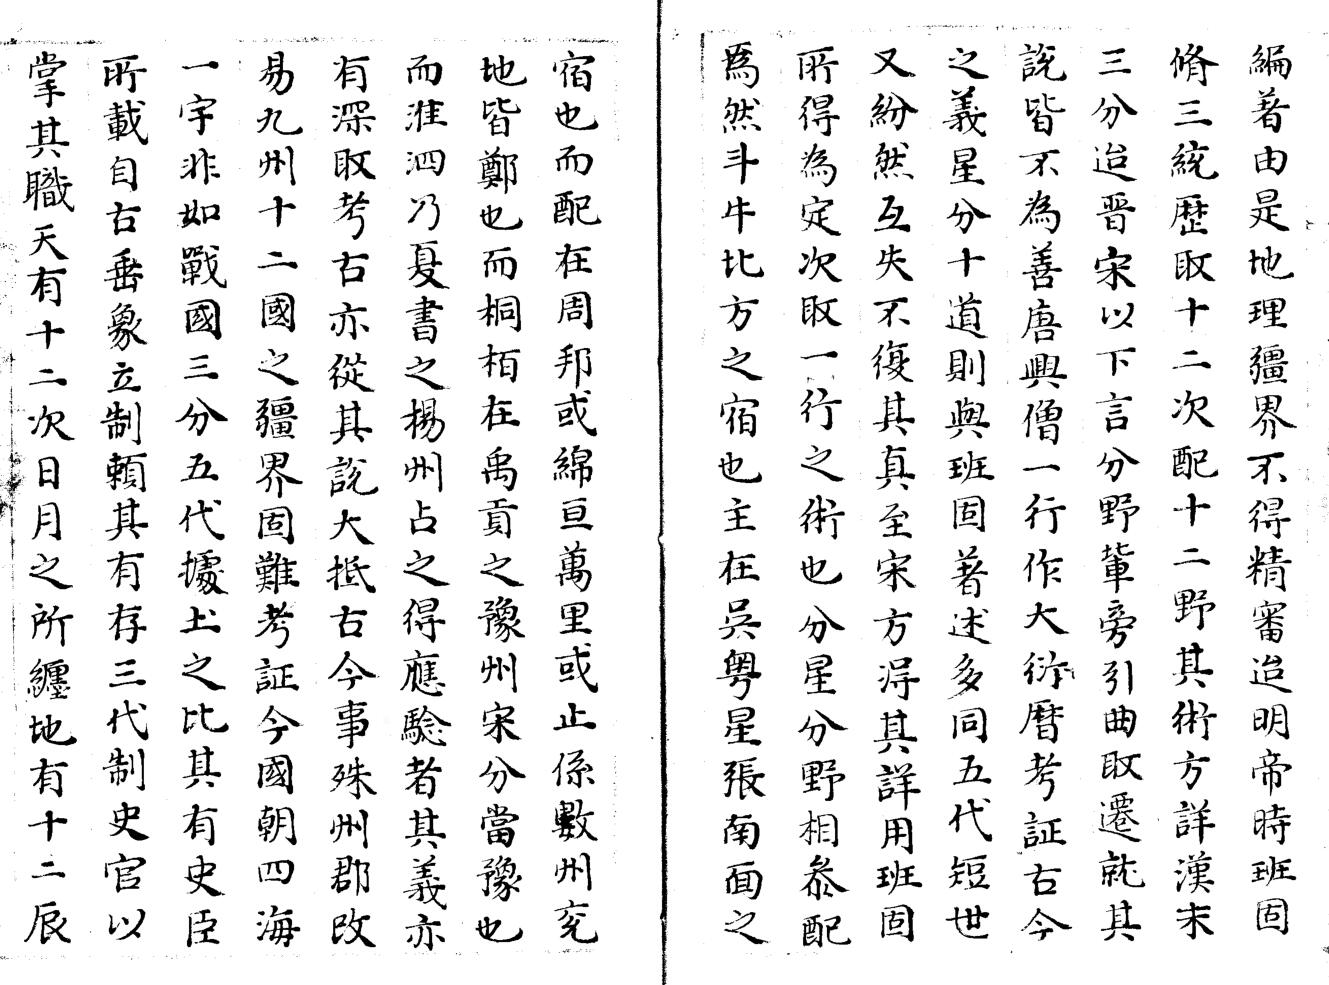 編著由是地理疆界不得精審迨明帝時班固
脩三統歷取十二次配十二野其術方詳漢末
三分迨晋宋以下言分野軰旁引曲取遷就其
說皆不為善唐興僧一行作大衍曆考証古今
之義星分十道則與班固著述多同五代短世
又紛然互失不復其真至宋方淂其詳用班固
所得為定次取一行之術也分星分野相叅配
爲然斗牛比方之宿也主在吴粤星張南面之
宿也而配在周邦或綿亘萬里或止係數州兖
地皆鄭也而桐栢在禹貢之豫州宋分當豫也
而淮泗乃夏書之楊州占之得應驗者其義亦
有深取考古亦從其說大抵古今事殊州郡改
易九州十二國之疆界固難考証今國朝四海
一宇非如戰國三分五代據土之比其有史臣
所載自古垂象立制頼其有存三代制史官以
掌其職天有十二次日月之所纏地有十二辰